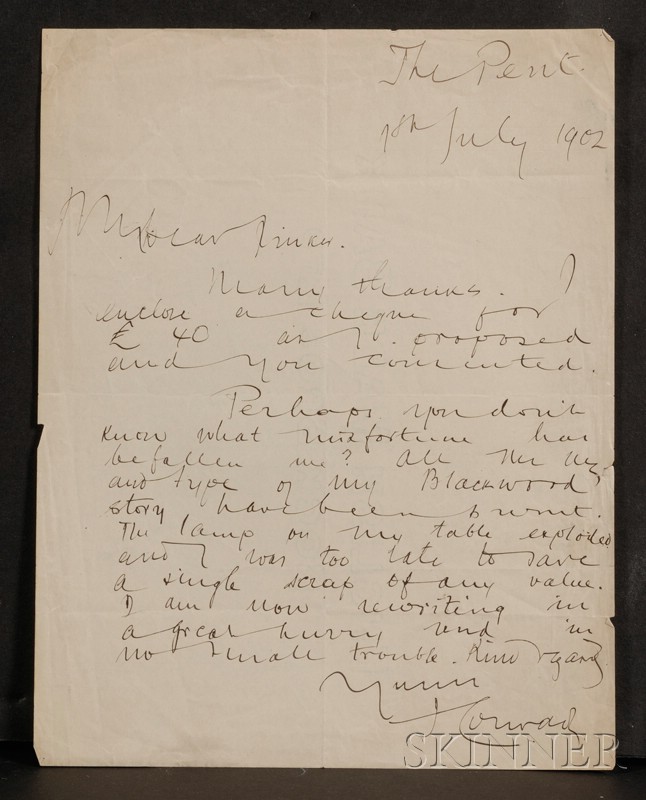 The Pent.
July 1902
My dear Pinker.
Many thanks. I
enclose a cheque for
£ 40 as I proposed
and you consented.
Perhaps you don't
know what misfortune has
befallen me? All the
and type of my Blackwood
story have been burnt.
The lamp on my table exploded
and I was too late to save
a single scrap of any value.
I am now rewriting in
a great hurry and in
no small trouble. Kind regards
Yours
J Conrad
SKINNER